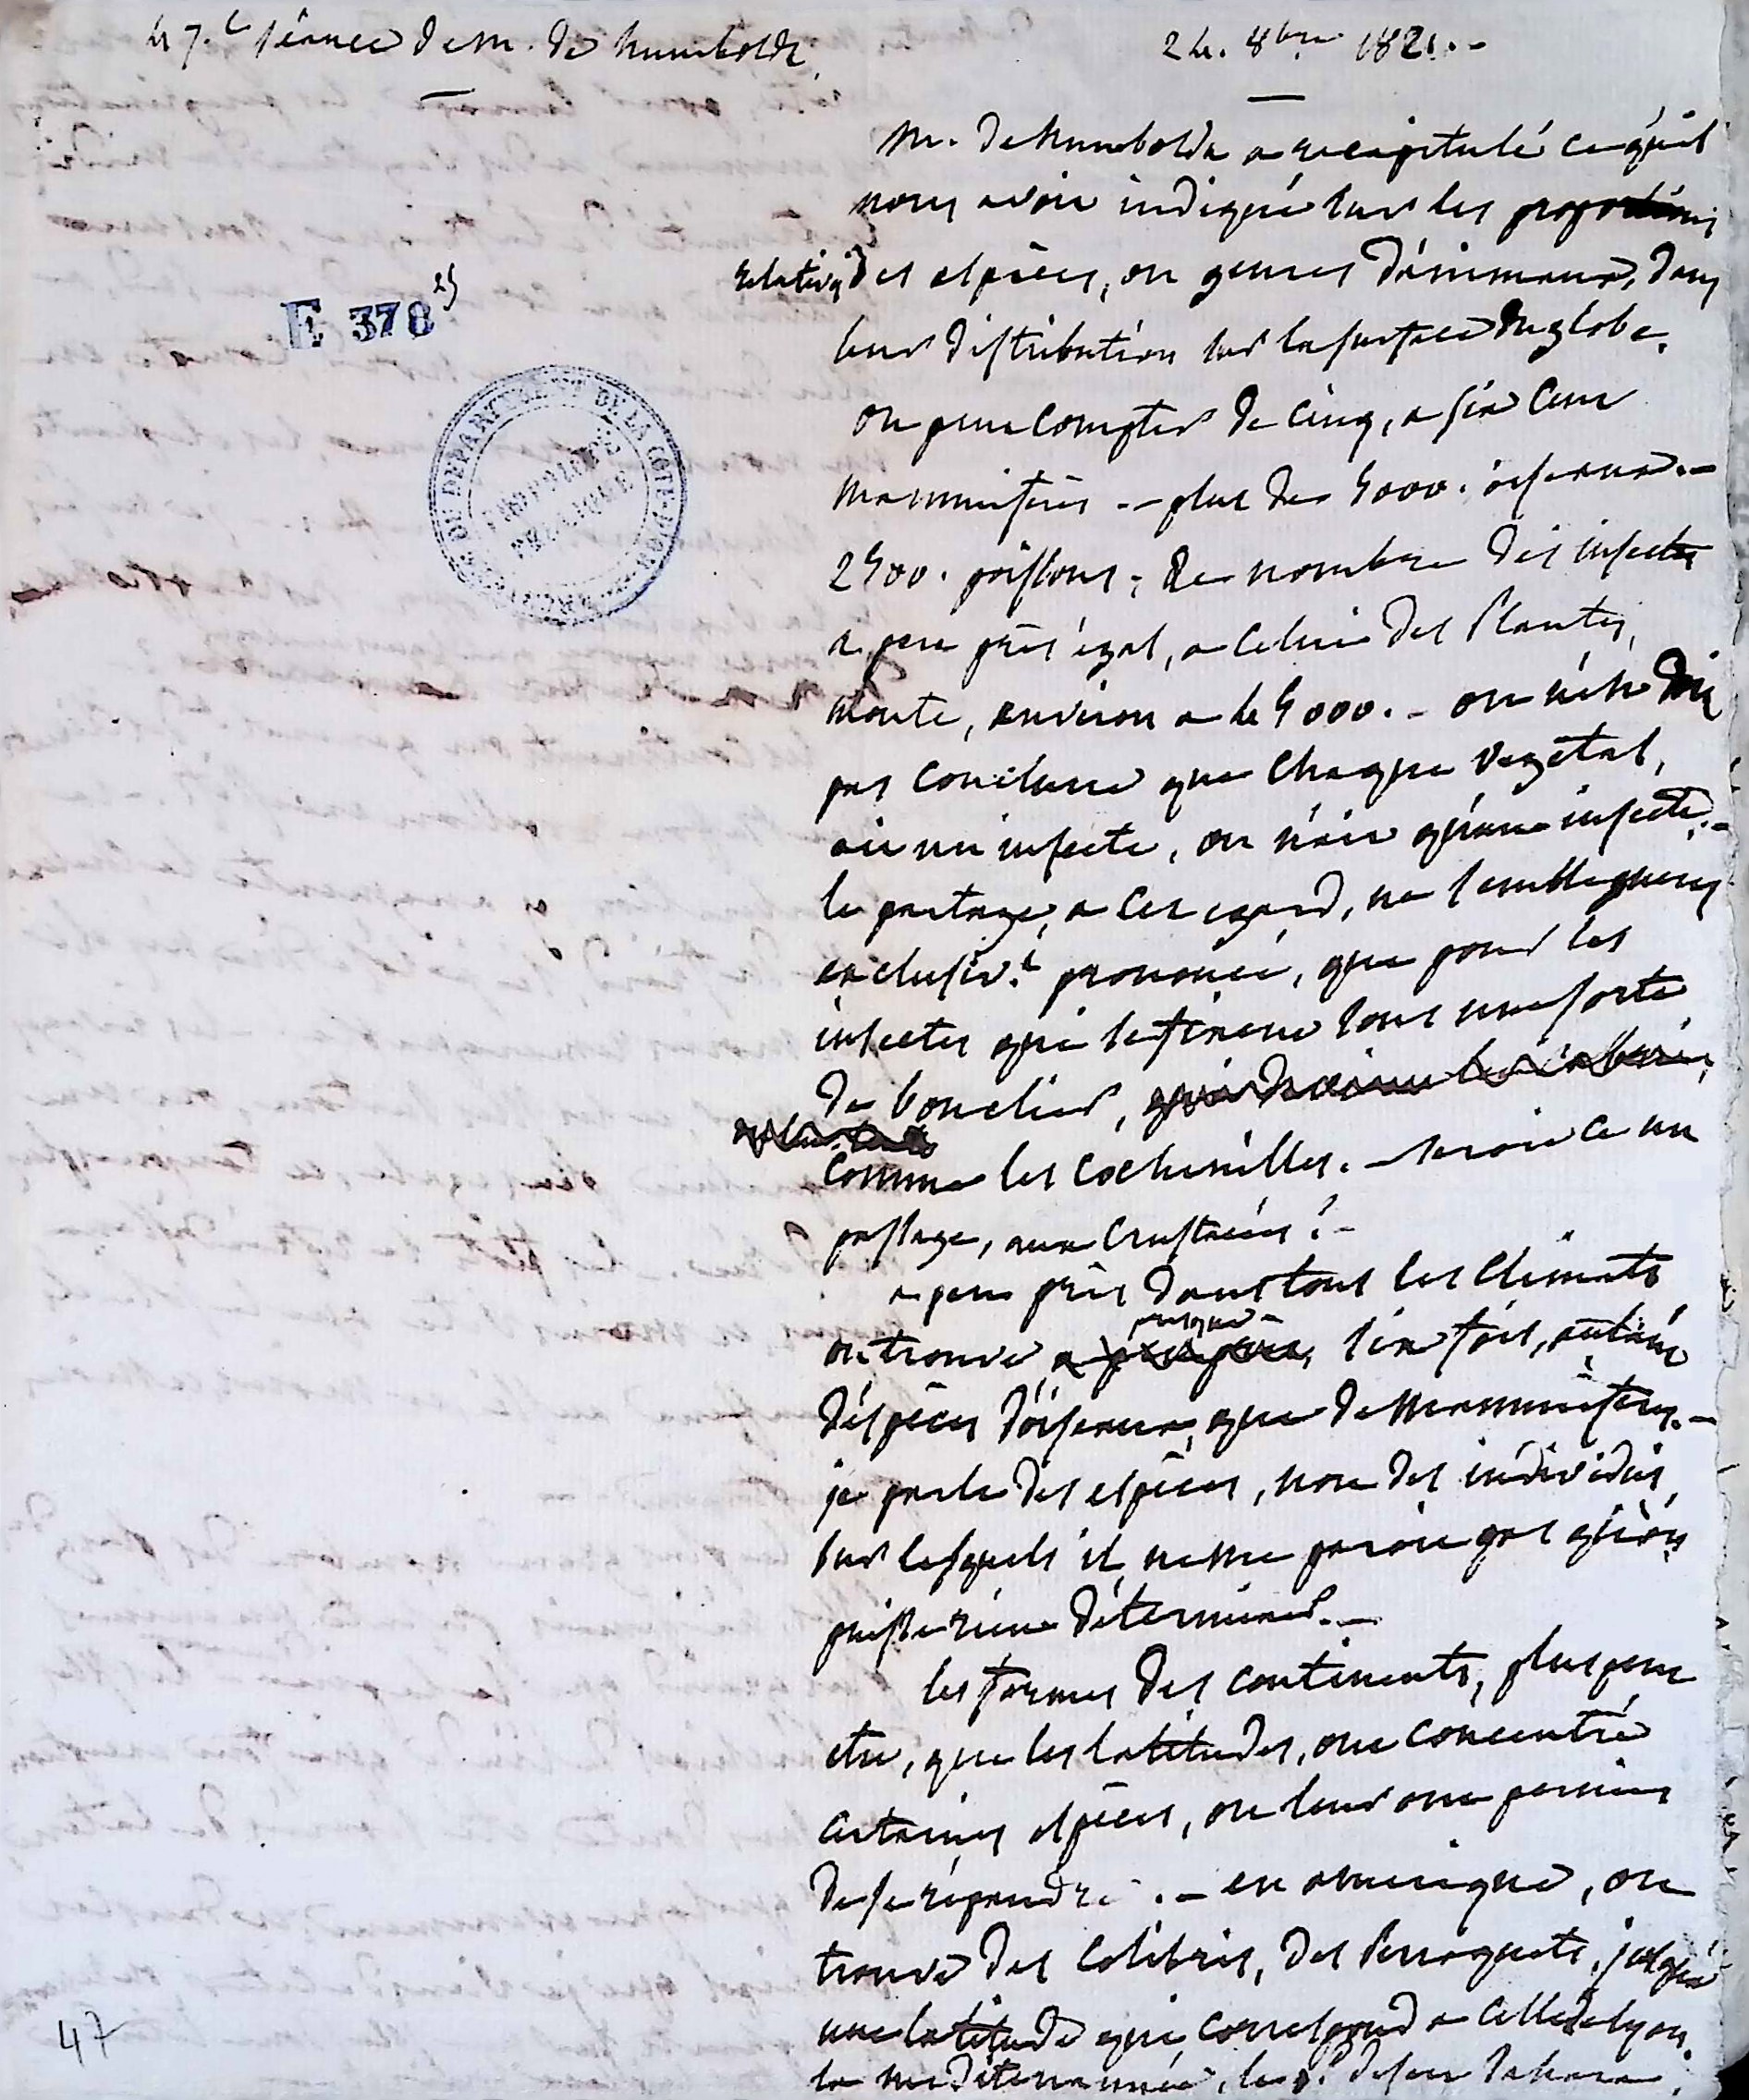 47.e séance de m. de humboldt.
24. 8bre 1821. -
m. de humboldt a recapitulé ce qu'il
nous avoit indiqué sur les proportions
relatives des espèces, ou genres d'animaux, dans
leur distribution sur la surface du globe.
E 378 25
on peut compter de cinq, a six cent
mammifères - plus de 4000. oiseaux. -
ARCHIVES DU DÉPARTEMENT DE LA CÔTE-D'OR
PROPRIÉTÉ PUBLIQUE
2400. poissons; le nombre des insectes
a peu près égal, a celui des Plantes,
monte, environ a 44000. - on n'en doit
pas conclure que chaque vegetal,
ait un insecte, ou n'ait qu'un insecte. -
le partage, a cet egard, ne semble gueres
exclusiv.t prononcé, que pour les
insectes qui se fixent sous une sorte
de bouclier,
comme les cochenilles. - seroit ce un
passage, aux Crustacés? -
a peu près dans tous les climats
on trouve a peu près presque six fois, autant
d'espèces d'oiseaux, que de mammifères. -
je parle des espèces, non des individus
sur lesquels il ne me paroit pas qu'on
puisse rien déterminer. -
les formes des continents, plus peut
etre, que les latitudes, ont concentré
certaines espèces, ou leur ont permis
de se répandre. - en amerique, on
trouve des Colibris, des Perroquets, jusqu'à
une latitude qui correspond a celle de lyon.
la mediterrannée, le g.d desert Sahara,
47